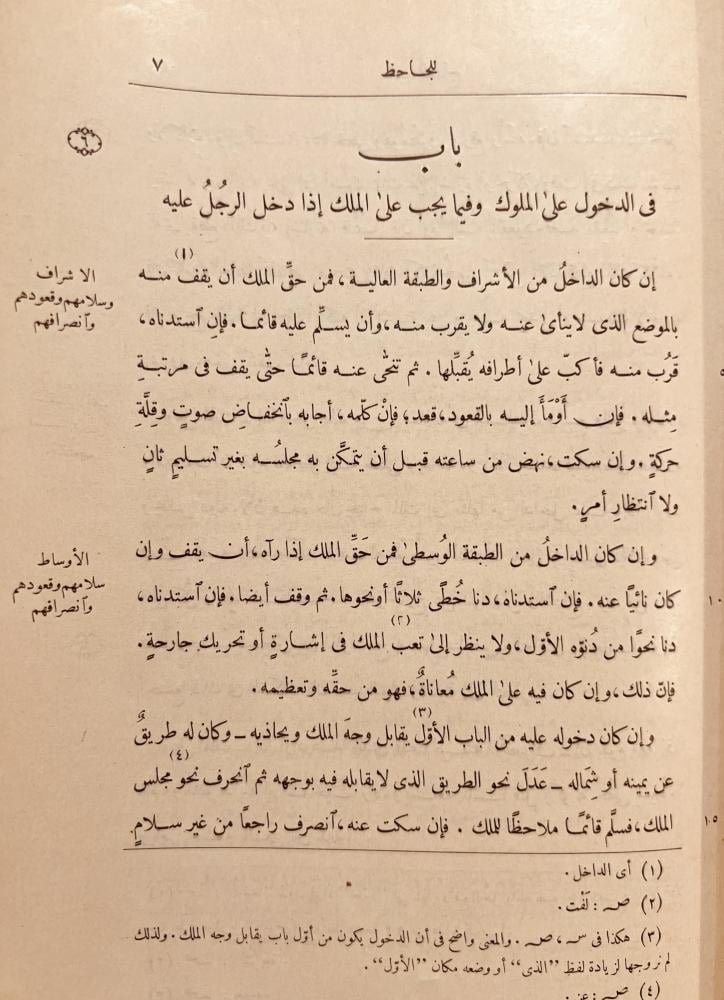 للجاحظ
٧
باب
فى الدخول علىٰ الملوك وفيما يجب علىٰ الملك إذا دخل الرجُلُ عليه
إن كان الداخلُ من الأشراف والطبقة العالية، فمن حقِّ الملك أن يقف(١) منه
بالموضع الذى لا ينأىٰ عنه ولا يقرب منه، وأن يسلِّم عليه قائما. فإن ٱستدناه،
قَرُب منه فأكبّ علىٰ أطرافه يُقبِّلها. ثم تنحّى عنه قائمًا حتّى يقف فى مرتبةِ
مِثله. فإن أَوْمَأَ إليه بالقعود، قعد؛ فإنْ كلّمه، أجابه بٱنخفاضِ صوتٍ وقِلَّةِ
حركةٍ. وإن سكت، نهض من ساعته قبل أن يتمكَّن به مجلسُه بغير تسليمٍ ثانٍ
ولا ٱنتظارِ أمرٍ.
وإن كان الداخلُ من الطبقة الوُسطىٰ فمن حَقِّ الملك إذا رآه، أن يقف وإن
كان نائيًا عنه. فإن ٱستدناه، دنا خُطًى ثلاثًا أو نحوها. ثم وقف أيضا. فإن ٱستدناه،
دنا نحوًا من دُنوّه الأوّل، ولا ينظر إلىٰ تعب(٢) الملك فى إشارةٍ أو تحريكِ جارحةٍ.
فإنّ ذلك، وإن كان فيه علىٰ الملك مُعاناةٌ، فهو من حقِّه وتعظيمه.
وإن كان دخوله عليه من الباب الأوّل(٣) يقابل وجهَ الملك ويحاذيه ــ وكان له طريقٌ
عن يمينه أو شِماله ــ عَدَلَ نحو الطريق الذى لا يقابله فيه بوجهه ثم ٱنحرف نحو(٤) مجلس
الملك، فسلَّم قائمًا ملاحظًا للملك. فإن سكت عنه، ٱنصرف راجعًا من غير سلامٍ
٦
الاشراف
وسلامهم وقعودهم
وٱنصرافهم
الأوساط
سلامهم وقعودهم
وٱنصرافهم
١٠
١٥
(١) أى الداخل.
(٢) صـ : لَفْت.
(٣) هكذا فى سـ، صـ. والمعنى واضح فى أن الدخول يكون من أوّل باب يقابل وجه الملك. ولذلك
لم نر وجها لزيادة لفظ "الذى" أو وضعه مكان "الأوّل".
(٤) صـ : عن.